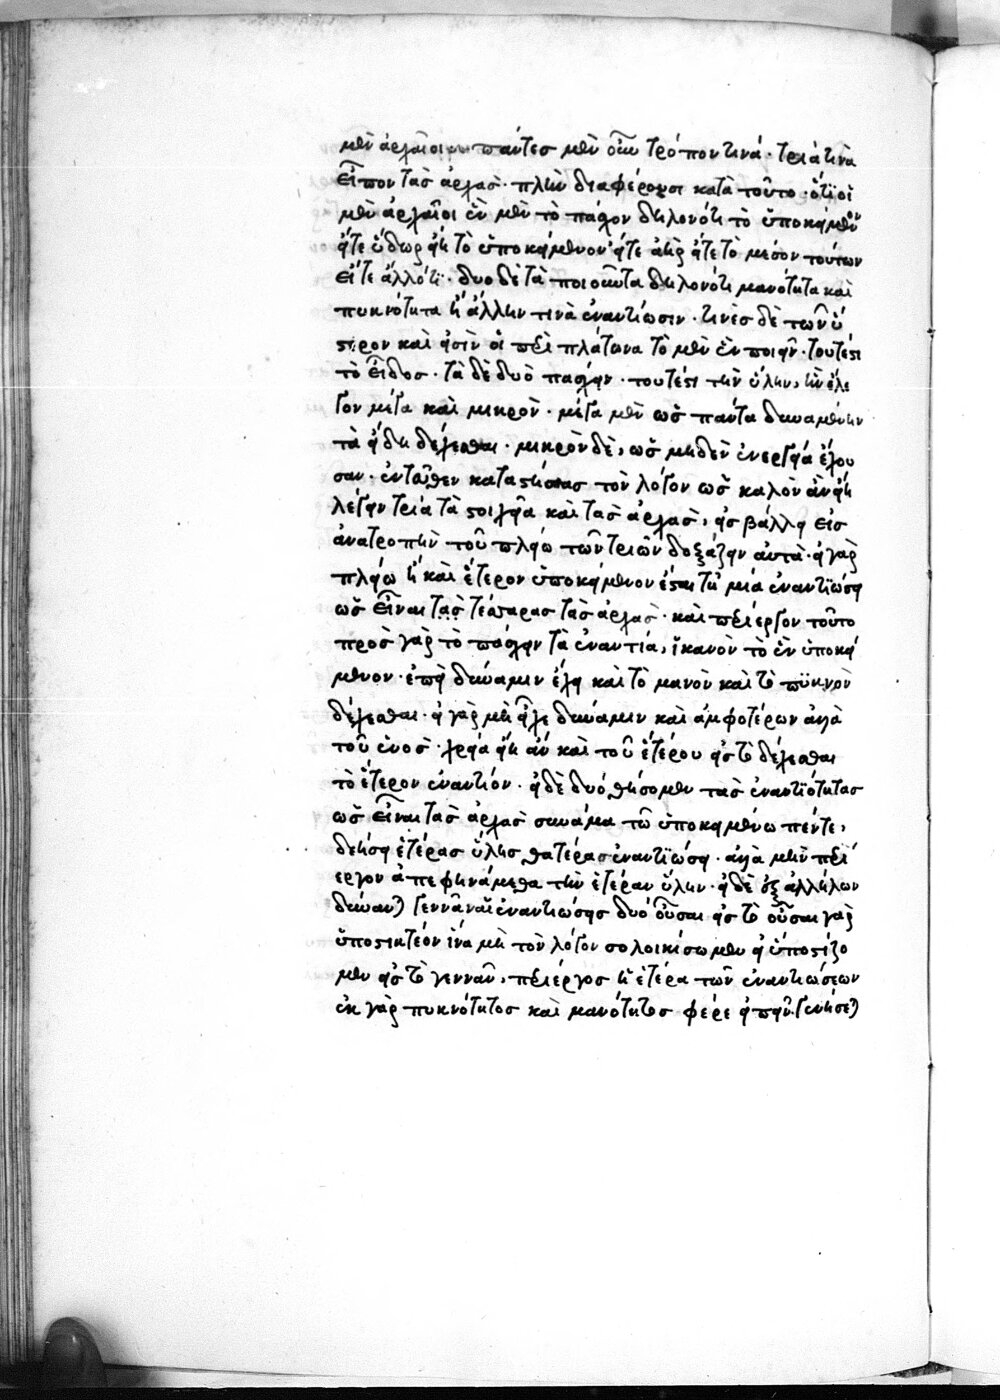 μὲν ἀρχαῖοι πάντες μὲν οὖν τρόπον τινὰ · τρία τινὰ
εἶπον τὰς ἀρχὰς · πλὴν διαφέρουσι κατὰ τοῦτο · ὅτι οἱ
μὲν ἀρχαῖοι ἓν μὲν τὸ πάσχον δηλονότι τὸ ὑποκείμενον
εἴτε ὕδωρ εἴη τὸ ὑποκείμενον εἴτε ἀὴρ εἴτε τὸ μέσον τούτων
εἴτε ἄλλό τι · δυο δὲ τὰ ποιοῦντα δηλονότι μανότητα καὶ
πυκνότητα ἢ ἄλλην τινὰ ἐναντίωσιν · τινὲς δὲ τῶν ὑ
στέρον καὶ εἰσὶν οἱ περὶ πλάτωνα τὸ μὲν ἓν ποιεῖν · τουτέστι
τὸ εἶδος · τὰ δὲ δυὸ πάσχειν · τουτέστι τὴν ὕλην, ἣν ἔλε
γον μέγα καὶ μικρὸν · μέγα μὲν ὡς πάντα δυναμένην
τὰ εἴδη δέχεσθαι · μικρὸν δὲ, ὡς μηδὲν ἐνεργεία ἔχου
σαν · ἐνταῦθεν καταστήσας τὸν λόγον ὡς καλὸν ἂν εἴη
λέγειν τρία τὰ στοιχεῖα καὶ τὰς ἀρχὰς, εἰσβάλλει εἰς
ἀνατροπὴν τοῦ πλείω τῶν τριῶν δοξάζειν αὐτὰ · εἰ γὰρ
πλείω ἢ καὶ ἕτερον ὑποκείμενον ἔσται τῇ μιᾶ ἐναντιώσει
ὡς εἶναι τὰς τέσσαρας τὰς ἀρχὰς · καὶ περίεργον τοῦτο
πρὸς γὰρ τὸ πάσχειν τὰ ἐναντία, ἱκανὸν τὸ ἓν ὑποκεί
μενον · ἐπεὶ δύναμιν ἔχει καὶ τὸ μανὸν καὶ τὸ πϋκνὸν
δέχεσθαι · εἰ γὰρ μὴ εἶχε δύναμιν καὶ ἀμφοτέρων ἀλλὰ
τοῦ ἑνὸς · χρεία εἴη ἂν καὶ τοῦ ἑτέρου εἰς τὸ δέχεσθαι
τὸ ἕτερον ἐναντίον · εἰ δὲ δυό θήσομεν τὰς ἐναντιότητας
ὡς εἶναι τὰς ἀρχὰς συνάμα τῶ ὑποκειμένω πέντε,
δεήσει ἑτέρας ὕλης θατέρας ἐναντιώσει · ἀλλὰ μὴν περί
εργον ἀπεφηνάμεθα τὴν ἑτέραν ὕλην · εἰ δὲ ἐξ ἀλλήλων
δύνανται γεννᾶν αἱ ἐναντιώσεις δυό οὖσαι εἰς τὸ οὖσαι γὰρ
ὑποστικτέον ἵνα μὴ τὸν λόγον σολοικίσωμεν εἰ ὑποστίζο
μεν εἰς τὸ γεννᾶν, περίεργος ἡ ἑτέρα τῶν ἐναντιώσεων
ἐκ γὰρ πυκνότητος καὶ μανότητος φέρε εἰπεῖν γεννήσεται